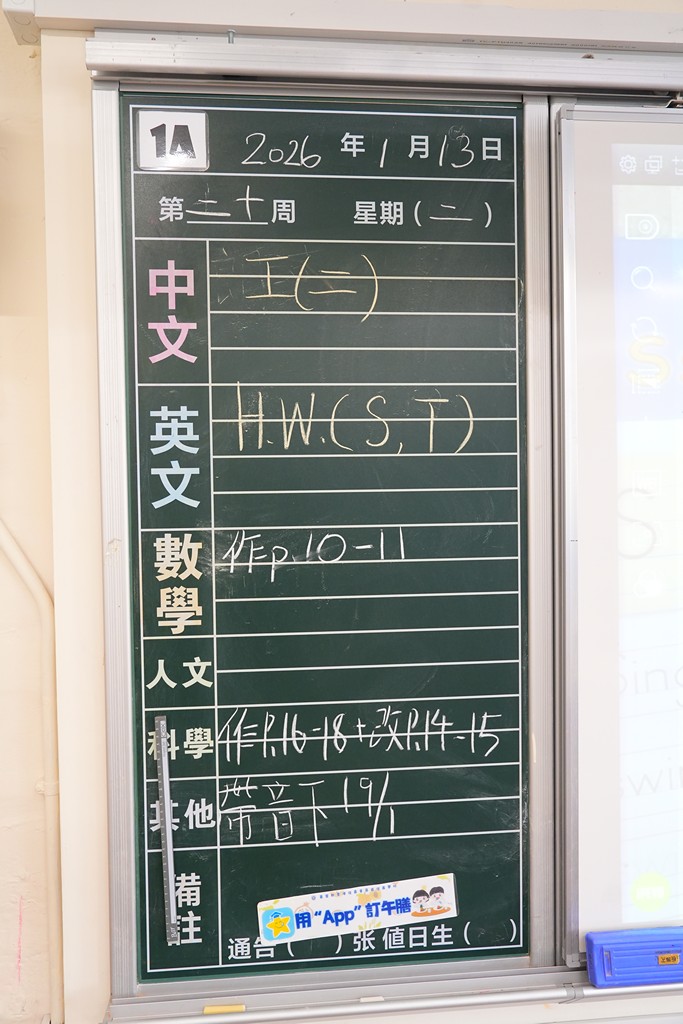 1A
2026 年 1 月 13 日
第 二十 周 星期 ( 二 )
中文
工(二)
英文
H.W.(S,T)
數學
作p.10-11
人文
科學 作P.16-18+改P.14-15
其他 帶音下 19/1
備註
用 “App” 訂午膳
通告 ( ) 张 値日生 ( )